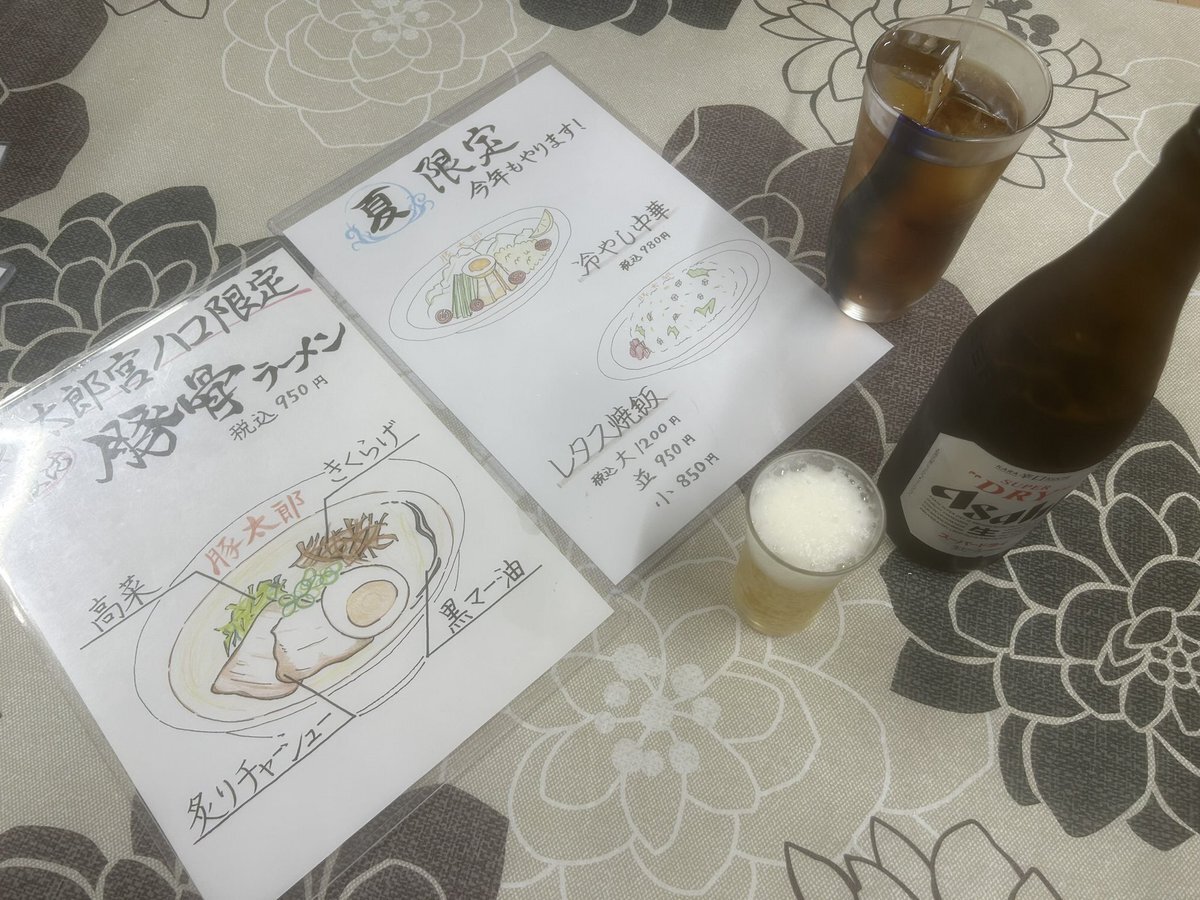 太郎宮ノ口限定
豚骨ラーメン
税込950円
きくらげ
豚太郎
高菜
黒マー油
炙りチャーシュー
夏限定
今年もやります!
冷やし中華
税込980円
レタス焼飯
税込 大1200円
並 950円
小 850円
SUPER
"DRY"
Asahi
生
スーパードライ